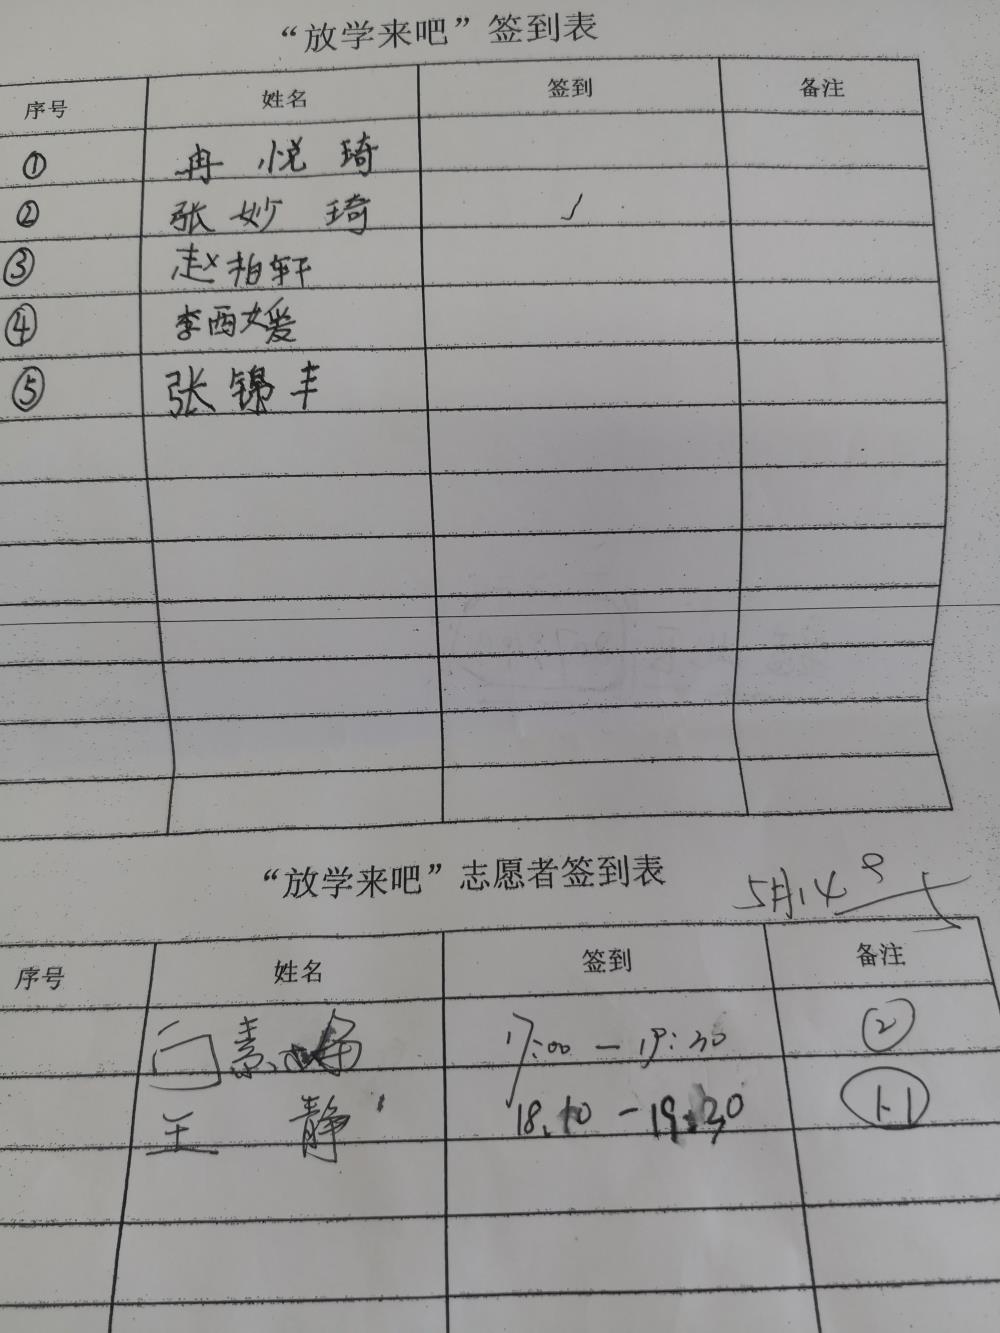 “放学来吧”签到表
序号 姓名 签到 备注
① 冉悦琦
② 张妙琦 ✓
③ 赵柏轩
④ 李西媛
⑤ 张锦丰
“放学来吧”志愿者签到表
5月14日
序号 姓名 签到 备注
闫素 17:00 — 19:30 ②
王静 18.10 — 19:30 1.1